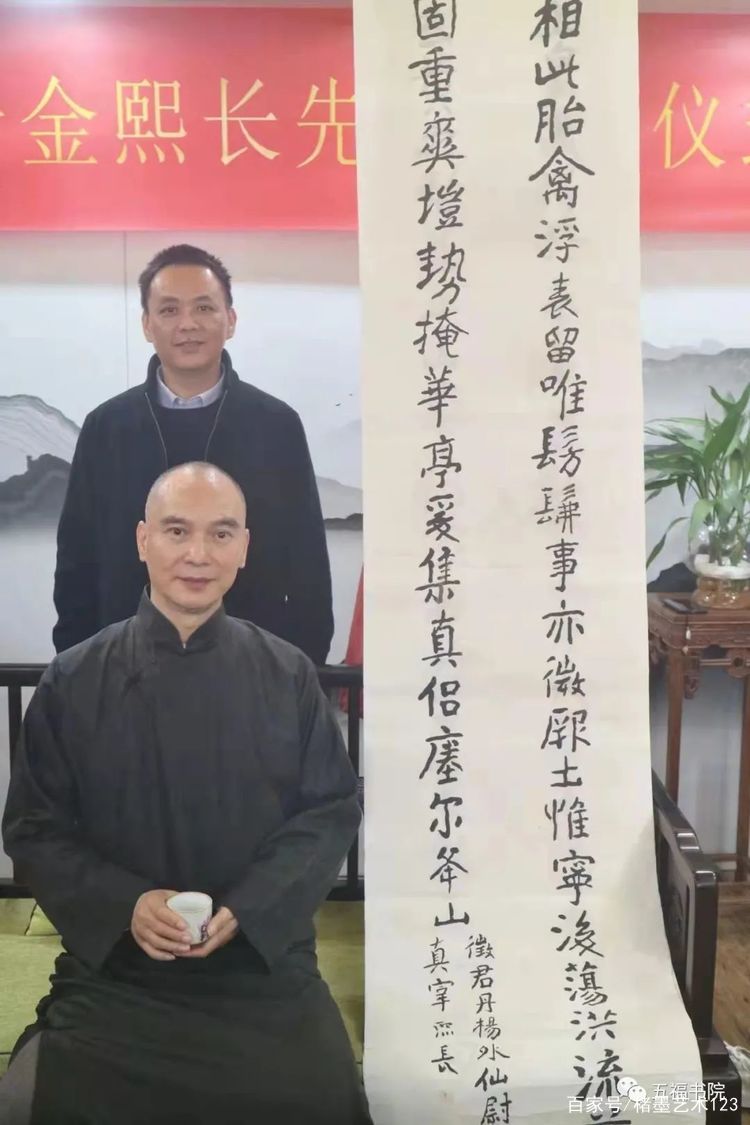 金熙长先
仪
相此胎禽浮表留唯髣髴事亦微厥土惟寧後蕩洪流
固重爽塏勢掩華亭爰集真侶瘞尔峯山
徵君丹楊外仙尉
真宰熙長
五福书院
百家号/楮墨艺术123